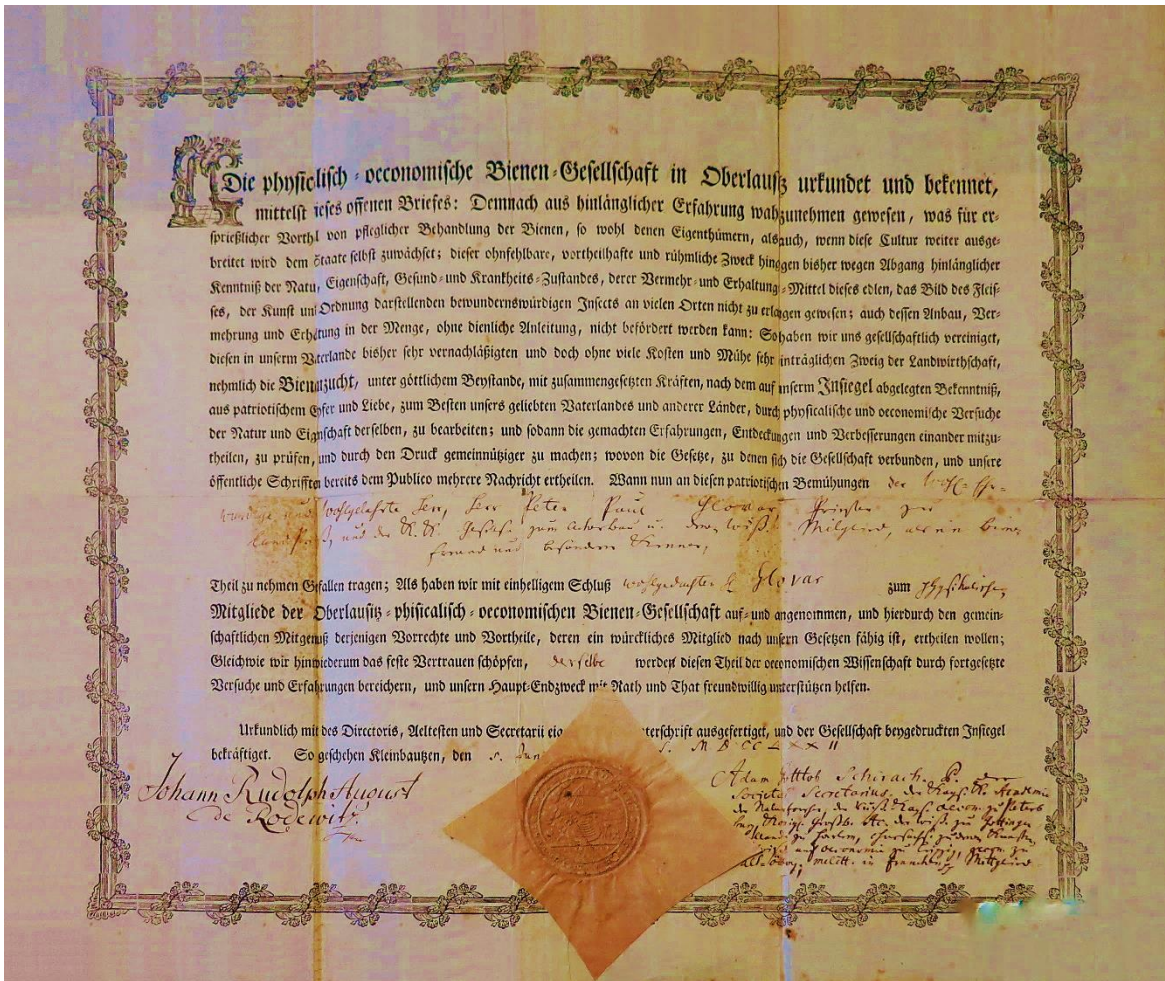 Die physicalisch-oeconomische Bienen-Gesellschaft in Oberlausitz urkundet und bekennet,
mittelst dieses offenen Briefes: Demnach aus hinlänglicher Erfahrung wahrzunehmen gewesen, was für er-
sprießlicher Vorthl von pfleglicher Behandlung der Bienen, so wohl denen Eigenthümern, als auch, wenn diese Cultur weiter ausge-
breitet wird dem Staate selbst zuwächset; dieser ohnfehlbare, vortheilhafte und rühmliche Zweck hingegen bisher wegen Abgang hinlänglicher
Kenntniß der Natur, Eigenschaft, Gesund- und Krankheits-Zustandes, derer Vermehr- und Erhaltungs-Mittel dieses edlen, das Bild des Fleis-
ses, der Kunst und Ordnung darstellenden bewundernswürdigen Insects an vielen Orten nicht zu erlangen gewesen; auch dessen Anbau, Ver-
mehrung und Erhaltung in der Menge, ohne dienliche Anleitung, nicht befördert werden kann: So haben wir uns gesellschaftlich vereiniget,
diesen in unserm Vaterlande bisher sehr vernachläßigten und doch ohne viele Kosten und Mühe sehr einträglichen Zweig der Landwirthschaft,
nehmlich die Bienenzucht, unter göttlichem Beystande, mit zusammengesetzten Kräften, nach dem auf unserm Insiegel abgelegten Bekenntniß,
aus patriotischem Eyfer und Liebe, zum Besten unsers geliebten Vaterlandes und anderer Länder, durch physicalische und oeconomische Versuche
der Natur und Eigenschaft derselben, zu bearbeiten; und sodann die gemachten Erfahrungen, Entdeckungen und Verbesserungen einander mitzu-
theilen, zu prüfen, und durch den Druck gemeinnütziger zu machen; wovon die Gesetze, zu denen sich die Gesellschaft verbunden, und unsere
öffentliche Schriften bereits dem Publico mehrere Nachricht ertheilen. Wann nun an diesen patriotischen Bemühungen der
Herr Peter Paul Glovar Priester
Mitglied,
Freund und besondrer Kenner,
Theil zu nehmen Gefallen tragen; Als haben wir mit einhelligem Schluß wohlgedachten H. Glovar zum
Mitgliede der Oberlausitz-phisicalisch-oeconomischen Bienen-Gesellschaft auf- und angenommen, und hierdurch den gemein-
schaftlichen Mitgenuß derjenigen Vorrechte und Vortheile, deren ein würckliches Mitglied nach unsern Gesetzen fähig ist, ertheilen wollen;
Gleichwie wir hinwiederum das feste Vertrauen schöpfen, derselbe werden diesen Theil der oeconomischen Wissenschaft durch fortgesetzte
Versuche und Erfahrungen bereichern, und unsern Haupt-Endzweck mit Rath und That freundwillig unterstützen helfen.
Urkundlich mit des Directoris, Aeltesten und Secretarii terschrift ausgefertiget, und der Gesellschaft beygedruckten Insiegel
bekräftiget. So geschehen Kleinbautzen, den MDCCLXXII
Johann Rudolph August
de Rodewitz
Adam Gottlob Schirach, P.
Societ. Secretarius, der Kays. Academie
der Naturforscher,
Mitglied